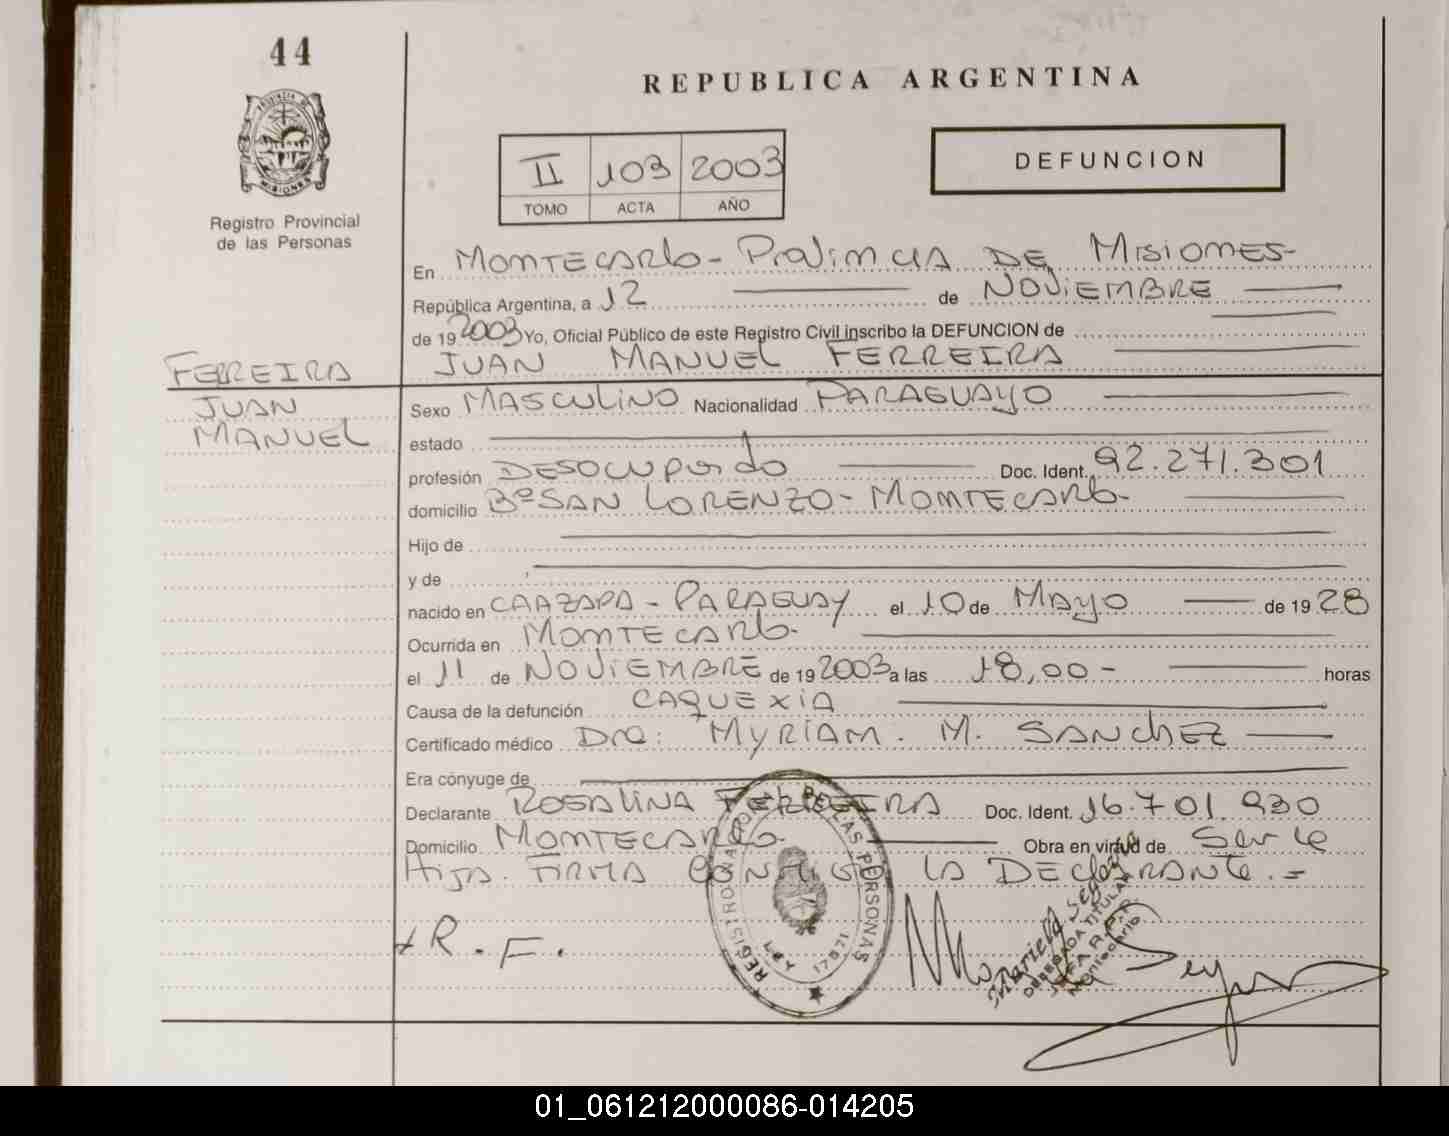 44
REPUBLICA ARGENTINA
PROVINCIA DE
MISIONES
Registro Provincial
de las Personas
II 103 2003
TOMO ACTA AÑO
DEFUNCION
En MONTECARLO - PROVINCIA DE MISIONES-
República Argentina, a 12 de NOVIEMBRE
de 19 2003 Yo, Oficial Público de este Registro Civil inscribo la DEFUNCION de
JUAN MANUEL FERREIRA
FERREIRA
JUAN
MANUEL
Sexo MASCULINO Nacionalidad PARAGUAYO
estado
profesión DESOCUPADO Doc. Ident. 92.271.301
domicilio Bº SAN LORENZO - MONTECARLO-
Hijo de
y de
nacido en CAAZAPA - PARAGUAY el 10 de MAYO de 19 28
Ocurrida en MONTECARLO-
el 11 de NOVIEMBRE de 19 2003 a las 18,00- horas
Causa de la defunción CAQUEXIA
Certificado médico Dra: MYRIAM. M. SANCHEZ
Era cónyuge de
Declarante ROSALINA FERREIRA Doc. Ident. 16.701.930
Domicilio MONTECARLO- Obra en virtud de Ser le
Hija. FIRMA CONMIGO LA DECLARANTE.=
REGISTRO NACIONAL DE LAS PERSONAS
LEY 17671
R. F.
Mariela Segovia
DELEGADA TITULAR
JEFA R.P.P.
Montecarlo
01_061212000086-014205